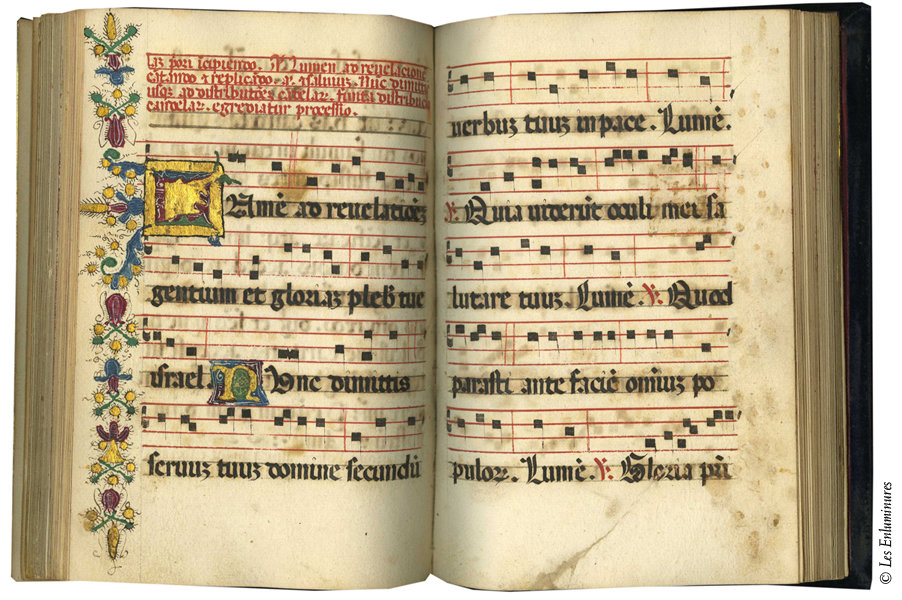 Lumen ad reuelacionē
cātando ⁊ replicādo.
usq; ad distributiōēs cādelar. finita distributiōe
candelar. egrediatur processio.
LUmē ad reuelationē
gentium et gloriaz plebˀ tue
israel. NUnc dimittis
seruuz tuuz domine secundū
uerbuz tuuz in pace. Lumē.
℣. Quia uiderūt oculi mei sa
lutare tuuz. Lumē. ℣. Quod
parasti ante faciē omiuz po
pulor. Lumē. ℣. Gloria pri
© Les Enluminures